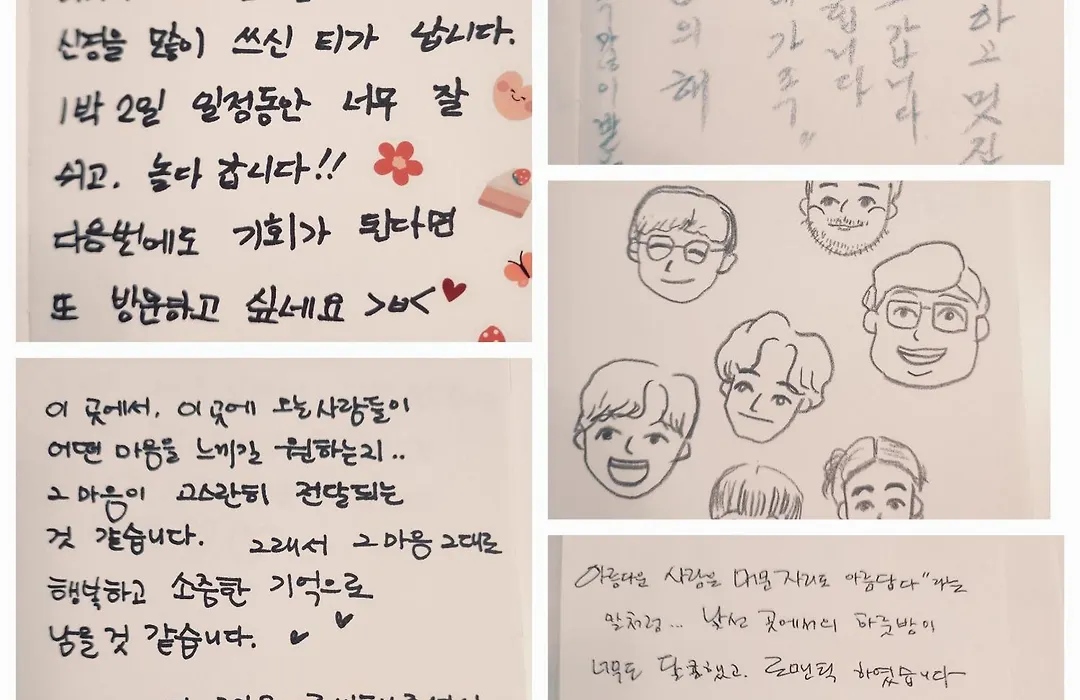 신경을 많이 쓰신 티가 납니다.
1박 2일 일정동안 너무 잘
쉬고, 놀다 갑니다!!
다음번에도 기회가 된다면
또 방문하고 싶네요 >ㅂ<
이 곳에서, 이 곳에 오는 사람들이
어떤 마음을 느끼길 원하는지..
그 마음이 고스란히 전달되는
것 같습니다. 그래서 그 마음 그대로
행복하고 소중한 기억으로
남을 것 같습니다.
하고 멋진
갑니다.
니다
가족"
의 해
아름다운 사람은 머문 자리도 아름답다"라는
말처럼... 낯선 곳에서의 하룻밤이
너무도 달콤했고, 로맨틱 하였습니다